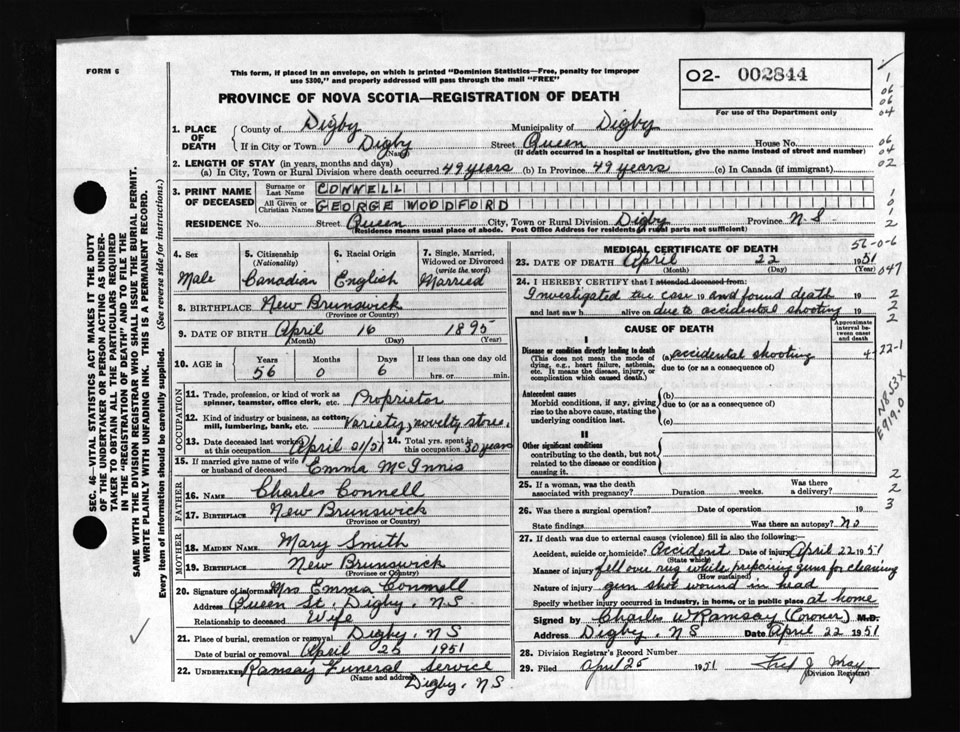 FORM 6
This form, if placed in an envelope, on which is printed "Dominion Statistics—Free, penalty for improper
use $300," and properly addressed will pass through the mail "FREE"
O2- 002844
For use of the Department only
PROVINCE OF NOVA SCOTIA—REGISTRATION OF DEATH
1. PLACE OF DEATH County of Digby Municipality of Digby
If in City or Town Digby (Name) Street Queen House No.
(If death occurred in a hospital or institution, give the name instead of street and number)
2. LENGTH OF STAY (in years, months and days)
(a) In City, Town or Rural Division where death occurred 49 years (b) In Province 49 years (c) In Canada (if immigrant)
3. PRINT NAME OF DECEASED Surname or Last Name CONNELL
All Given or Christian Names GEORGE WOODFORD
RESIDENCE No. Street Queen City, Town or Rural Division Digby Province N.S
(Residence means usual place of abode. Post Office Address for residents of rural parts not sufficient)
4. Sex Male
5. Citizenship (Nationality) Canadian
6. Racial Origin English
7. Single, Married, Widowed or Divorced (write the word) Married
8. BIRTHPLACE New Brunswick
(Province or Country)
9. DATE OF BIRTH April 16 1895
(Month) (Day) (Year)
10. AGE in Years 56 Months 0 Days 6 If less than one day old hrs. or min.
OCCUPATION
11. Trade, profession, or kind of work as spinner, teamster, office clerk, etc. Proprietor
12. Kind of industry or business, as cotton-mill, lumbering, bank, etc. Variety, novelty store.
13. Date deceased last worked at this occupation April 21/51 14. Total yrs. spent in this occupation 30 years
15. If married give name of wife or husband of deceased Emma McInnis
FATHER
16. NAME Charles Connell
17. BIRTHPLACE New Brunswick
(Province or Country)
MOTHER
18. MAIDEN NAME Mary Smith
19. BIRTHPLACE New Brunswick
(Province or Country)
20. Signature of informant Mrs Emma Connell
Address Queen St. Digby, N.S
Relationship to deceased Wife
21. Place of burial, cremation or removal Digby, NS
Date of burial or removal April 25 1951
22. UNDERTAKER Ramsay Funeral Service
(Name and address) Digby, NS
MEDICAL CERTIFICATE OF DEATH
23. DATE OF DEATH April 22 1951
(Month) (Day) (Year)
24. I HEREBY CERTIFY that I attended deceased from:
Investigated the case 19 and found death 19
and last saw h alive on due to accidental shooting 19
CAUSE OF DEATH
Approximate interval between onset and death
I
Disease or condition directly leading to death (a) accidental shooting
(This does not mean the mode of dying, e.g., heart failure, asthenia, etc. It means the disease, injury, or complication which caused death.)
due to (or as a consequence of)
Antecedent causes (b)
Morbid conditions, if any, giving rise to the above cause, stating the underlying condition last.
due to (or as a consequence of)
(c)
II
Other significant conditions contributing to the death, but not related to the disease or condition causing it.
25. If a woman, was the death associated with pregnancy? Duration weeks. Was there a delivery?
26. Was there a surgical operation? Date of operation 19
State findings Was there an autopsy? No
27. If death was due to external causes (violence) fill in also the following:
Accident, suicide or homicide? Accident Date of injury April 22 1951
(State which)
Manner of injury fell over rug while preparing guns for cleaning
(How sustained)
Nature of injury gun shot wound in head
Specify whether injury occurred in industry, in home, or in public place at home
Signed by Charles W Ramsay (Coroner) M.D.
Address Digby, NS Date April 22 1951
28. Division Registrar's Record Number
29. Filed April 25 1951 Fred J. May
(Division Registrar)
SEC. 46—VITAL STATISTICS ACT MAKES IT THE DUTY
OF THE UNDERTAKER OR PERSON ACTING AS UNDER-
TAKER TO OBTAIN ALL THE PARTICULARS REQUIRED
IN THE "REGISTRATION OF DEATH" AND TO FILE THE
SAME WITH THE DIVISION REGISTRAR WHO SHALL ISSUE THE BURIAL PERMIT.
WRITE PLAINLY WITH UNFADING INK. THIS IS A PERMANENT RECORD.
Every item of information should be carefully supplied. (See reverse side for instructions.)
1
06
06
04
06
04
02
1
0
1
2
56-0-6
047
2
2
2
22-1
N863X
E919.0
2
2
3